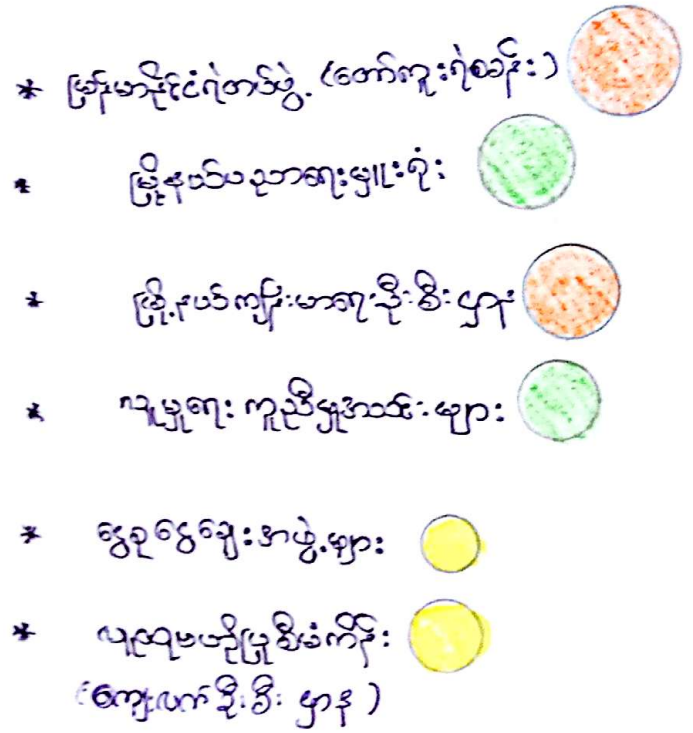 * မြန်မာနိုင်ငံရဲတပ်ဖွဲ့ (တော်ကူးရဲစခန်း)
* မြို့နယ်ပညာရေးမှူးရုံး
* မြို့နယ်ကျန်းမာရေးဦးစီးဌာန
* လူမှုရေး ကူညီမှုအသင်းများ
* ငွေစုငွေချေးအဖွဲ့များ
* လူထုဗဟိုပြုစီမံကိန်း
(ကျေးလက်ဦးစီး ဌာန)